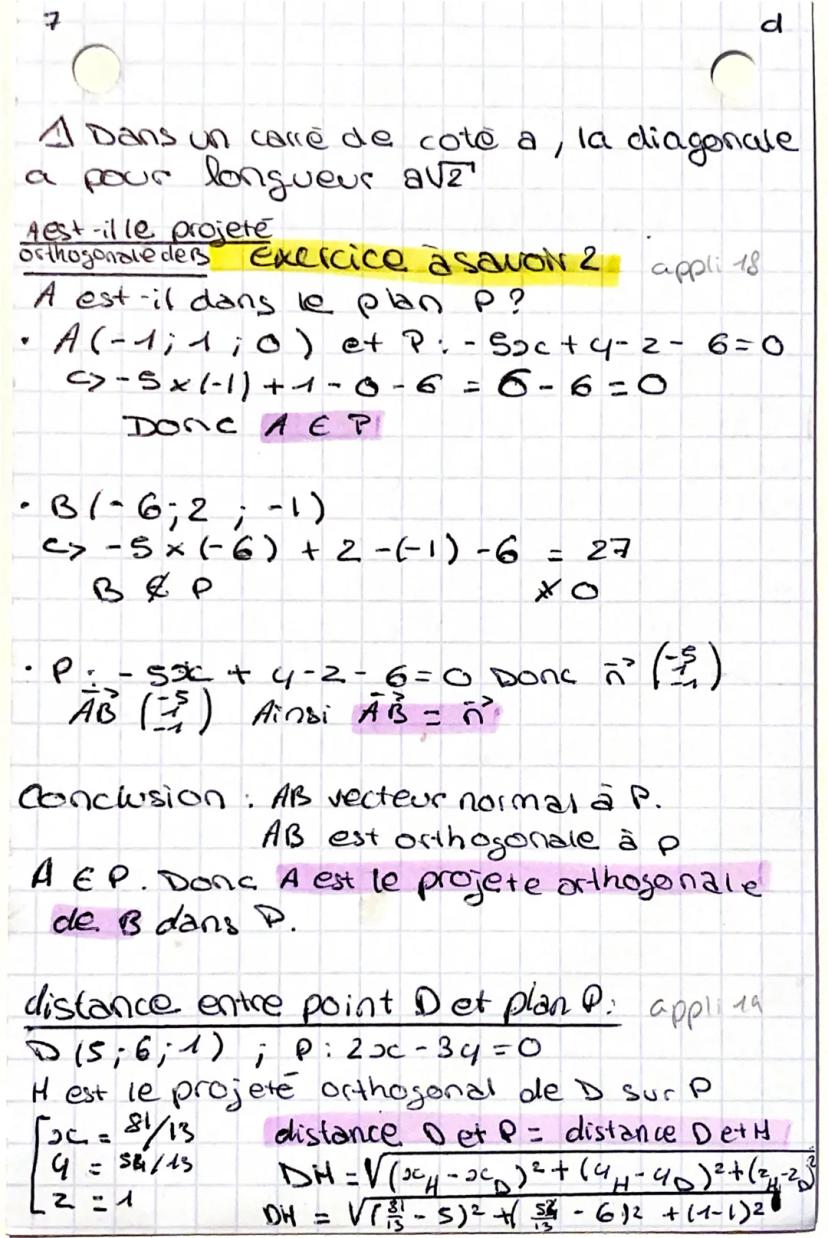 7 d
⚠ Dans un carré de coté a, la diagonale
a pour longueur a√2
A est-il le projeté
orthogonale de B Exercice à savoir 2 appli 18
A est-il dans le plan P?
• A(-1; 1; 0) et P: -5x + y - z - 6 = 0
<=> -5 × (-1) + 1 - 0 - 6 = 6 - 6 = 0
Donc A ∈ P
• B(-6; 2; -1)
<=> -5 × (-6) + 2 - (-1) - 6 = 27
B ∉ P ≠ 0
• P: -5x + y - z - 6 = 0 Donc n⃗ (-5 1 -1)
AB⃗ (-5 1 -1) Ainsi AB⃗ = n⃗
Conclusion : AB vecteur normal à P.
AB est orthogonale à P
A ∈ P. Donc A est le projete orthogonale
de B dans P.
distance entre point D et plan P: appli 19
D(5; 6; 1) ; P: 2x - 3y = 0
H est le projeté orthogonal de D sur P
x = 81/13 distance D et P = distance D et H
y = 54/13 DH = √(x_H - x_D)² + (y_H - y_D)² + (z_H - z_D)²
z = 1
DH = √(81/13 - 5)² + (54/13 - 6)² + (1-1)²